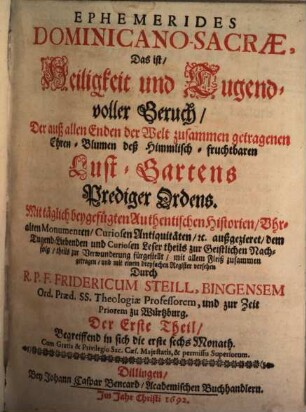 EPHEMERIDES
DOMINICANO-SACRÆ,
Das ist/
Heiligkeit und Tugend-
voller Geruch/
Der auß allen Enden der Welt zusammen getragenen
Ehren-Blumen deß Himmlisch-fruchtbaren
Lust-Gartens
Prediger Ordens.
Mit täglich beygefügten Authentischen Historien/ Uhr-
alten Monumenten/ Curiosen Antiquitäten/ ꝛc. außgezieret/ dem
Tugend-Liebenden und Curiosen Leser theils zur Geistlichen Nach-
folg/ theils zur Verwunderung fürgestellt/ mit allem Fleiß zusammen
getragen/ und mit einem dreyfachen Register versehen
Durch
R. P. F. FRIDERICUM STEILL, BINGENSEM
Ord. Præd. SS. Theologiæ Professorem, und zur Zeit
Priorem zu Würtzburg.
Der Erste Theil/
Begreiffend in sich die erste sechs Monath.
Cum Gratiâ & Privilegio Sac. Cæs. Majestatis, & permissu Superiorum.
Dillingen/
Bey Johann Caspar Bencard/ Academischen Buchhandlern.
Im Jahr Christi 1692.